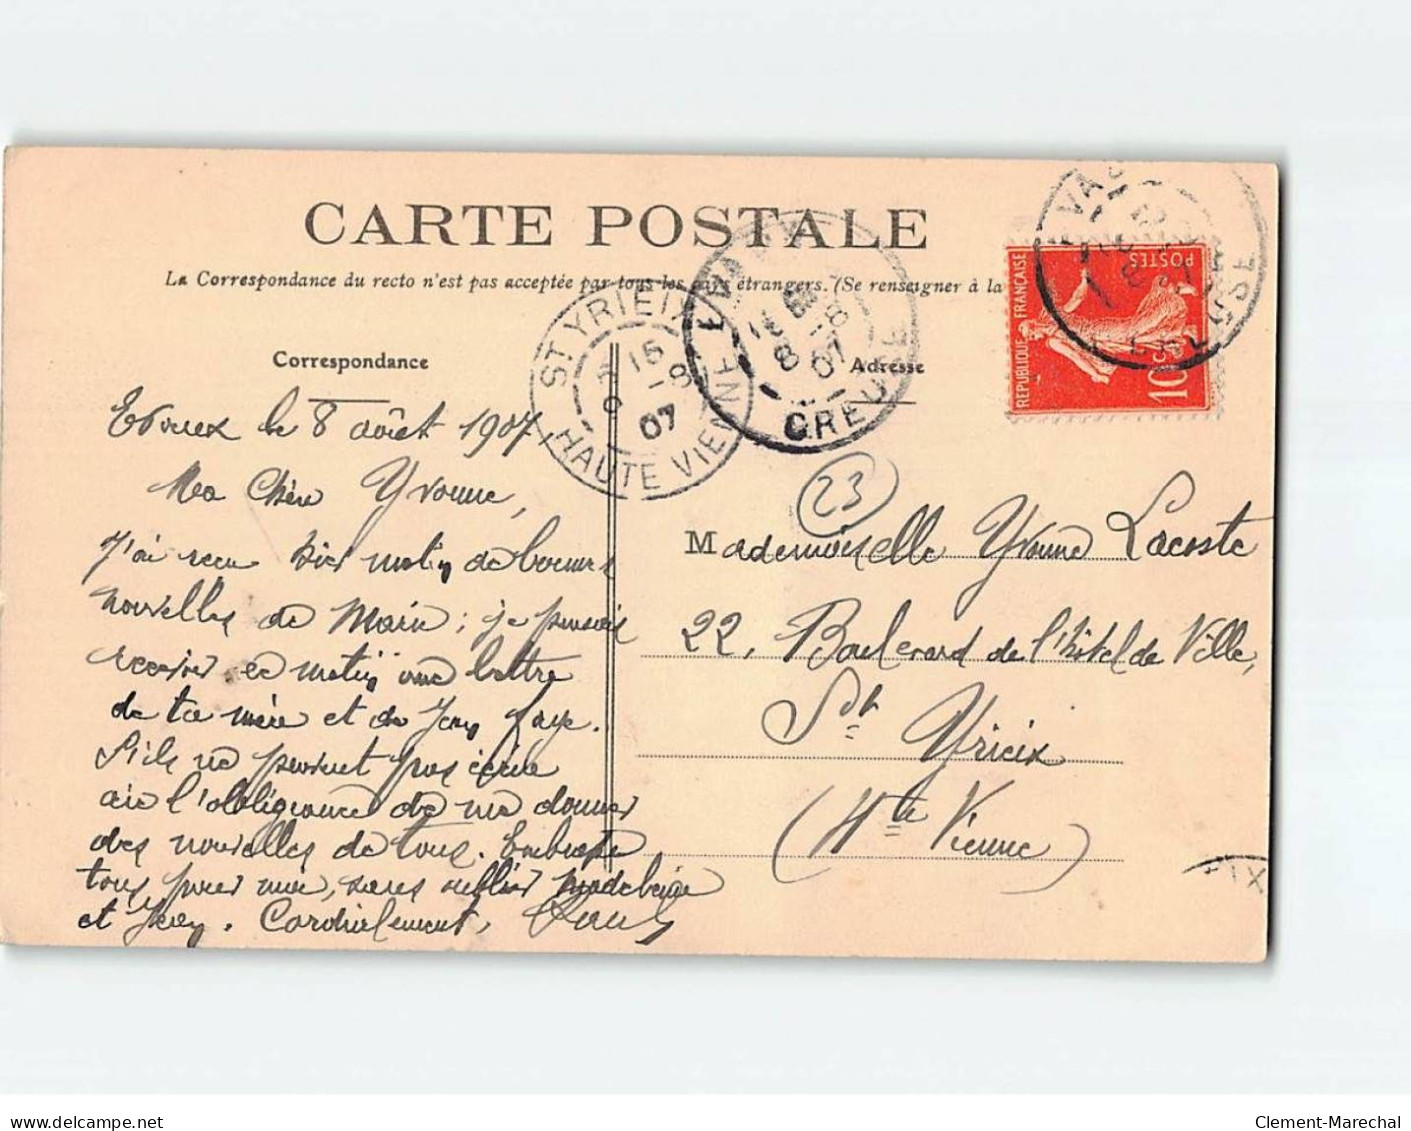 CARTE POSTALE
La Correspondance du recto n'est pas acceptée par tous les pays étrangers. (Se renseigner à la
Correspondance
Adresse
ST YRIEIX
15
9 -8
07
HAUTE VIENNE
8 07
CREUSE
REPUBLIQUE FRANÇAISE
POSTES
10 c
le 8 août 1907
Ma Chère Yvonne,
J'ai reçu hier matin de bonnes
nouvelles de Marie ; je pensais
recevoir ce matin une lettre
de ta mère et de
S'ils ne peuvent pas écrire
aie l'obligeance de me donner
des nouvelles de tous. Embrasse
tous pour moi, sans oublier Madeleine
et . Cordialement,
23
Mademoiselle Yvonne Lacoste
22, Boulevard de l'hôtel de Ville,
St Yrieix
(Hte Vienne)
Clement-Marechal